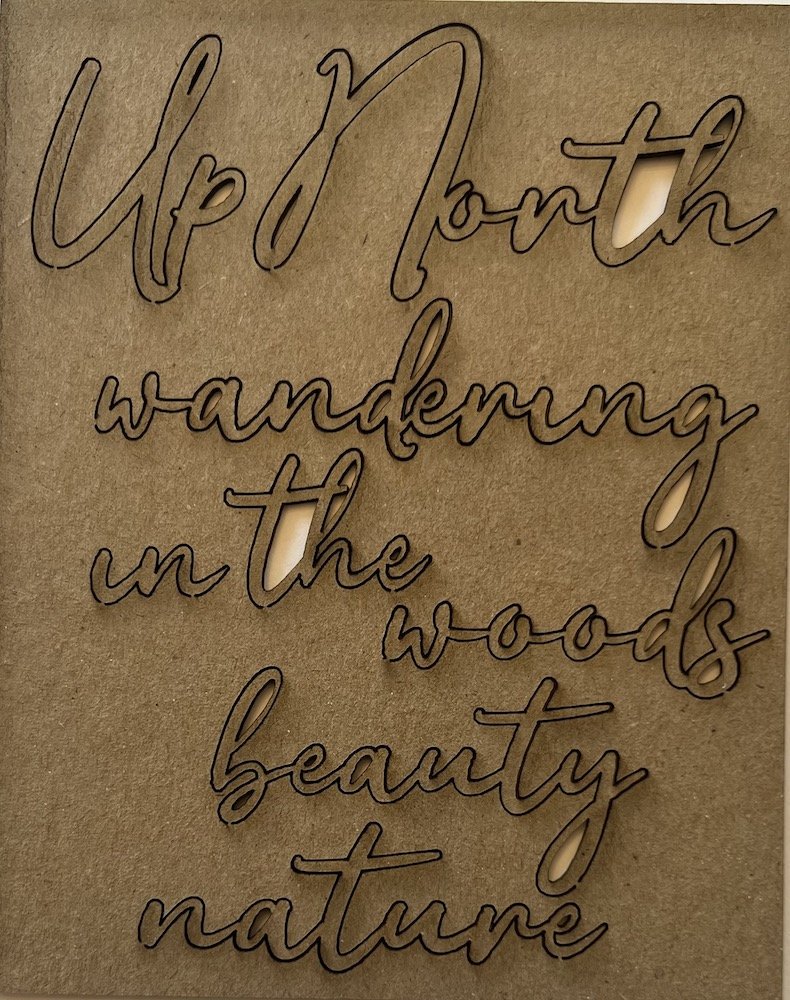 Up North
wandering
in the
woods
beauty
nature